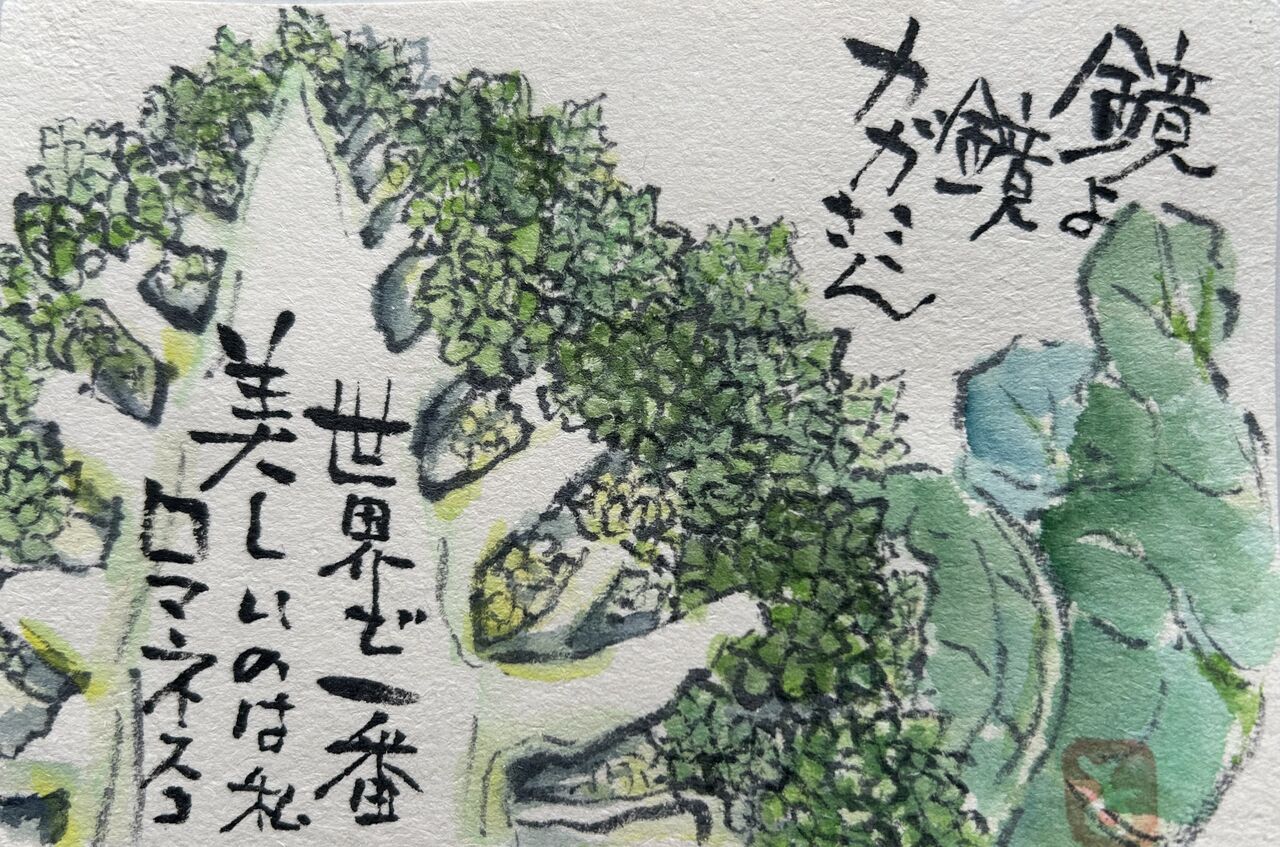 鏡よ
鏡
カがミさん
世界で一番
美しいのは私
ロマネスコ